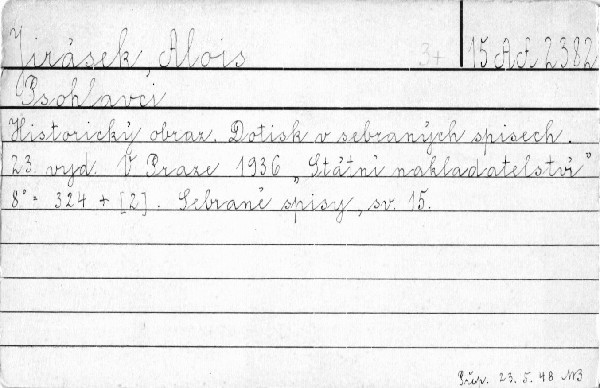 Jirásek, Alois 3+ 15 Ad 2382
Psohlavci
Historický obraz. Dotisk v sebraných spisech.
23. vyd. V Praze 1936 "Státní nakladatelství"
8° - 324 + [2]. Sebrané spisy, sv. 15.
Přep. 23. 5. 48 NB